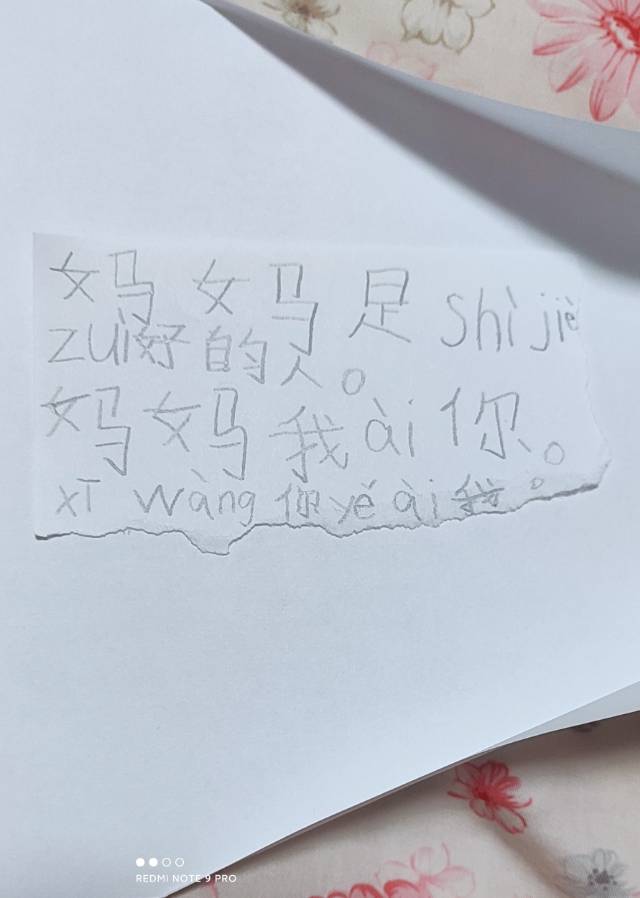 妈妈是shì jiè
zuì好的人。
妈妈我ài你。
xī wàng你yě ài我。
REDMI NOTE 9 PRO